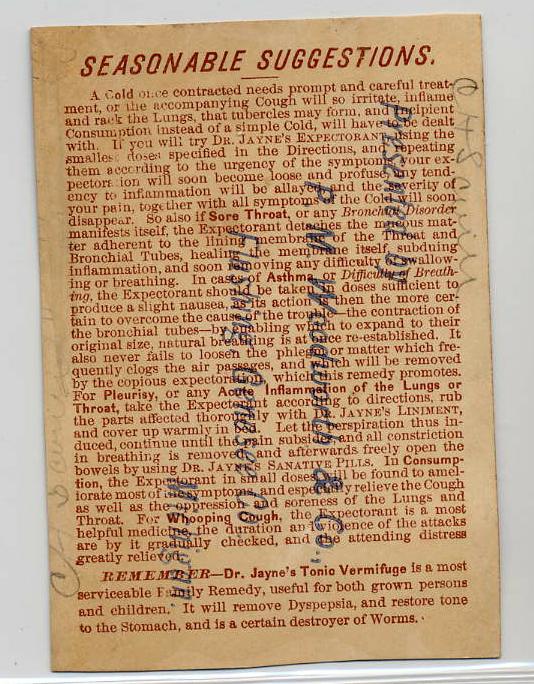 SEASONABLE SUGGESTIONS.
A Cold once contracted needs prompt and careful treat-
ment, or the accompanying Cough will so irritate, inflame
and rack the Lungs, that tubercles may form, and incipient
Consumption instead of a simple Cold, will have to be dealt
with. If you will try DR. JAYNE'S EXPECTORANT, using the
smallest doses specified in the Directions, and repeating
them according to the urgency of the symptoms, your ex-
pectoration will soon become loose and profuse, any tend-
ency to inflammation will be allayed, and the severity of
your pain, together with all symptoms of the Cold will soon
disappear. So also if Sore Throat, or any Bronchial Disorder
manifests itself, the Expectorant detaches the mucous mat-
ter adherent to the lining membrane of the Throat and
Bronchial Tubes, healing the membrane itself, subduing
inflammation, and soon removing any difficulty in swallow-
ing or breathing. In cases of Asthma, or Difficulty of Breath-
ing, the Expectorant should be taken in doses sufficient to
produce a slight nausea, as its action is then the more cer-
tain to overcome the cause of the trouble—the contraction of
the bronchial tubes—by enabling which to expand to their
original size, natural breathing is at once re-established. It
also never fails to loosen the phlegm or matter which fre-
quently clogs the air passages, and which will be removed
by the copious expectoration which this remedy promotes.
For Pleurisy, or any Acute Inflammation of the Lungs or
Throat, take the Expectorant according to directions, rub
the parts affected thoroughly with DR. JAYNE'S LINIMENT,
and cover up warmly in bed. Let the perspiration thus in-
duced, continue until the pain subsides, and all constriction
in breathing is removed, and afterwards freely open the
bowels by using DR. JAYNE'S SANATIVE PILLS. In Consump-
tion, the Expectorant in small doses will be found to amel-
iorate most of its symptoms, and especially relieve the Cough
as well as the oppression and soreness of the Lungs and
Throat. For Whooping Cough, the Expectorant is a most
helpful medicine, the duration and violence of the attacks
are by it gradually checked, and the attending distress
greatly relieved.
REMEMBER—Dr. Jayne's Tonic Vermifuge is a most
serviceable Family Remedy, useful for both grown persons
and children. It will remove Dyspepsia, and restore tone
to the Stomach, and is a certain destroyer of Worms.
Presented by
Woodworth & Co.,
Flushing, Genesee Co.
Michigan